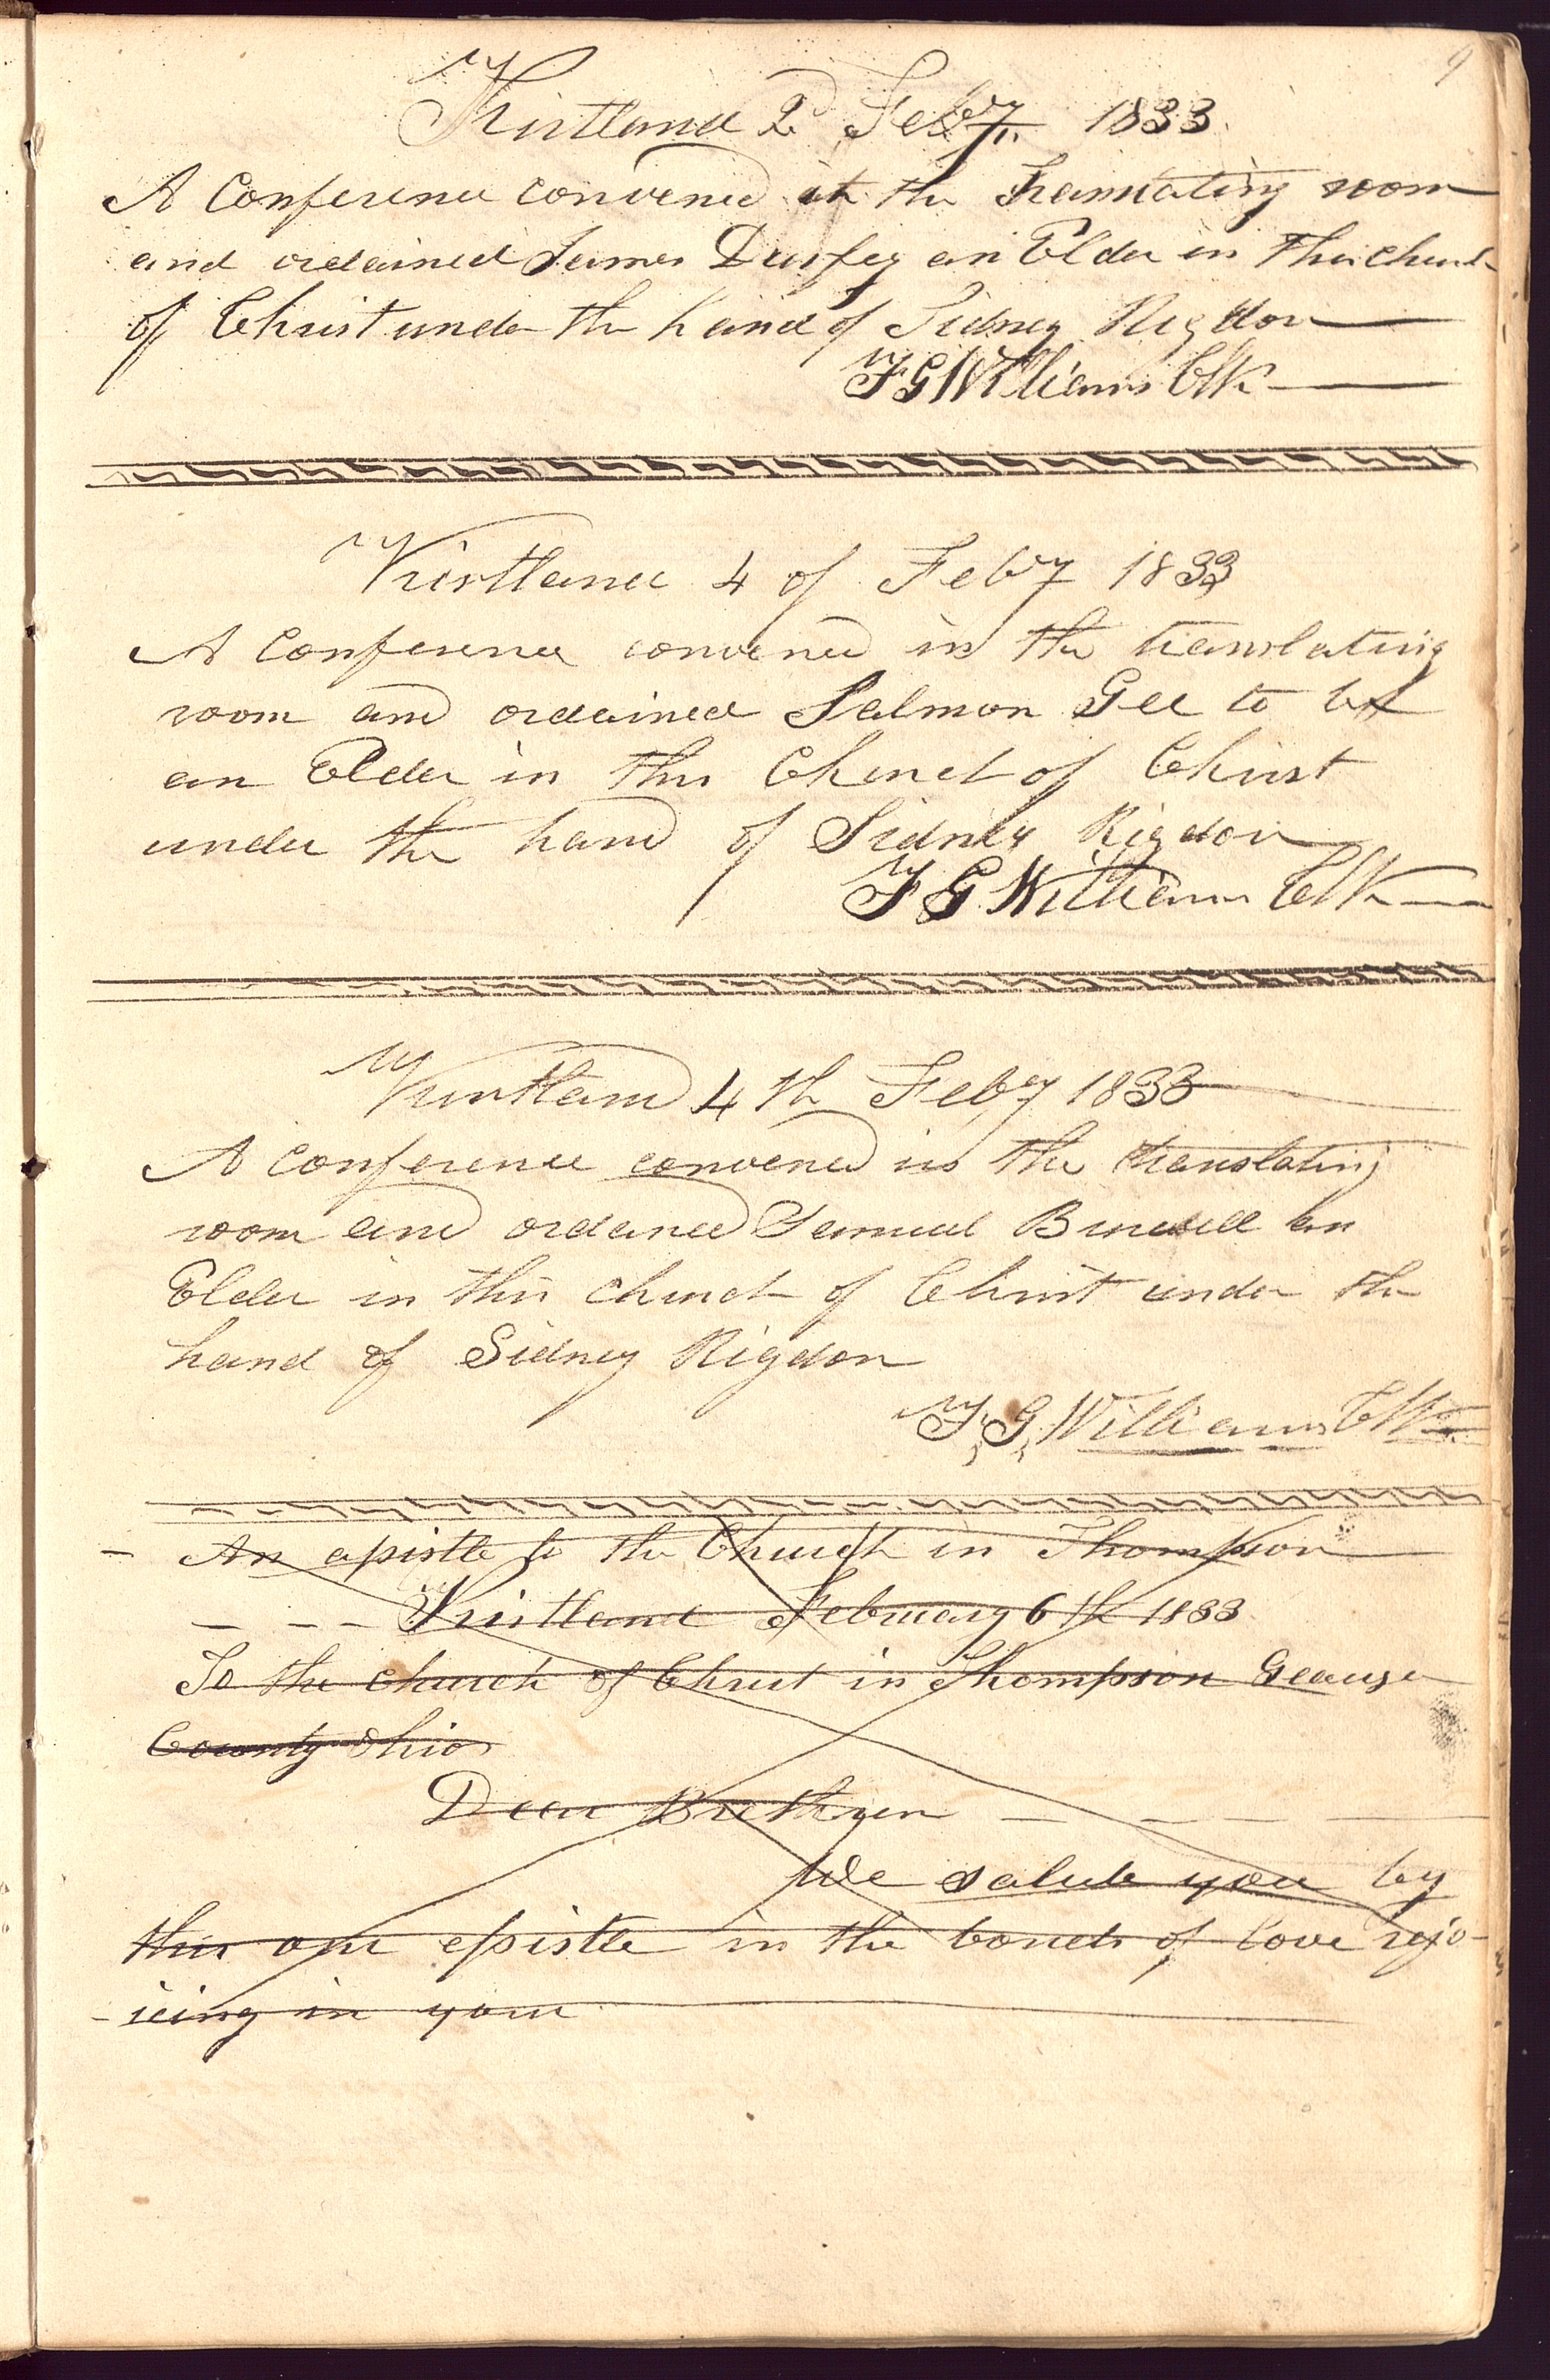 9
Kirtland 2d Feby 1833.
A Conference convened at the Translating room
and ordained James Durfey an Elder in this church
of Christ under the hand of Sidney Rigdon
F G Williams Clk
Kirtland 4 of Feby 1833
A Conference convened in the translating
room and ordained Salmon Gee to be
an Elder in this Church of Christ
under the hand of Sidney Rigdon
F G Williams Clk
Kirtland 4th Feby 1833
A Conference convened in the translating
room and ordaned Samuel an
Elder in this church of Christ under the
hand of Sidney Rigdon
F, G, Williams Clk
An epistle to the Church in Thompson
Kirtland February 6th 1833
To the church of Christ in Thompson Geauga
County Ohio
Dear Brethren
We salute you by
this our epistle in the bonds of love rejo-
-icing in your